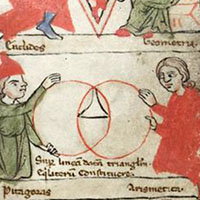 Euclides Geometria
Sup lineā datā trianglm
Eqlaterū Constituere
Pitagoras Arismetica